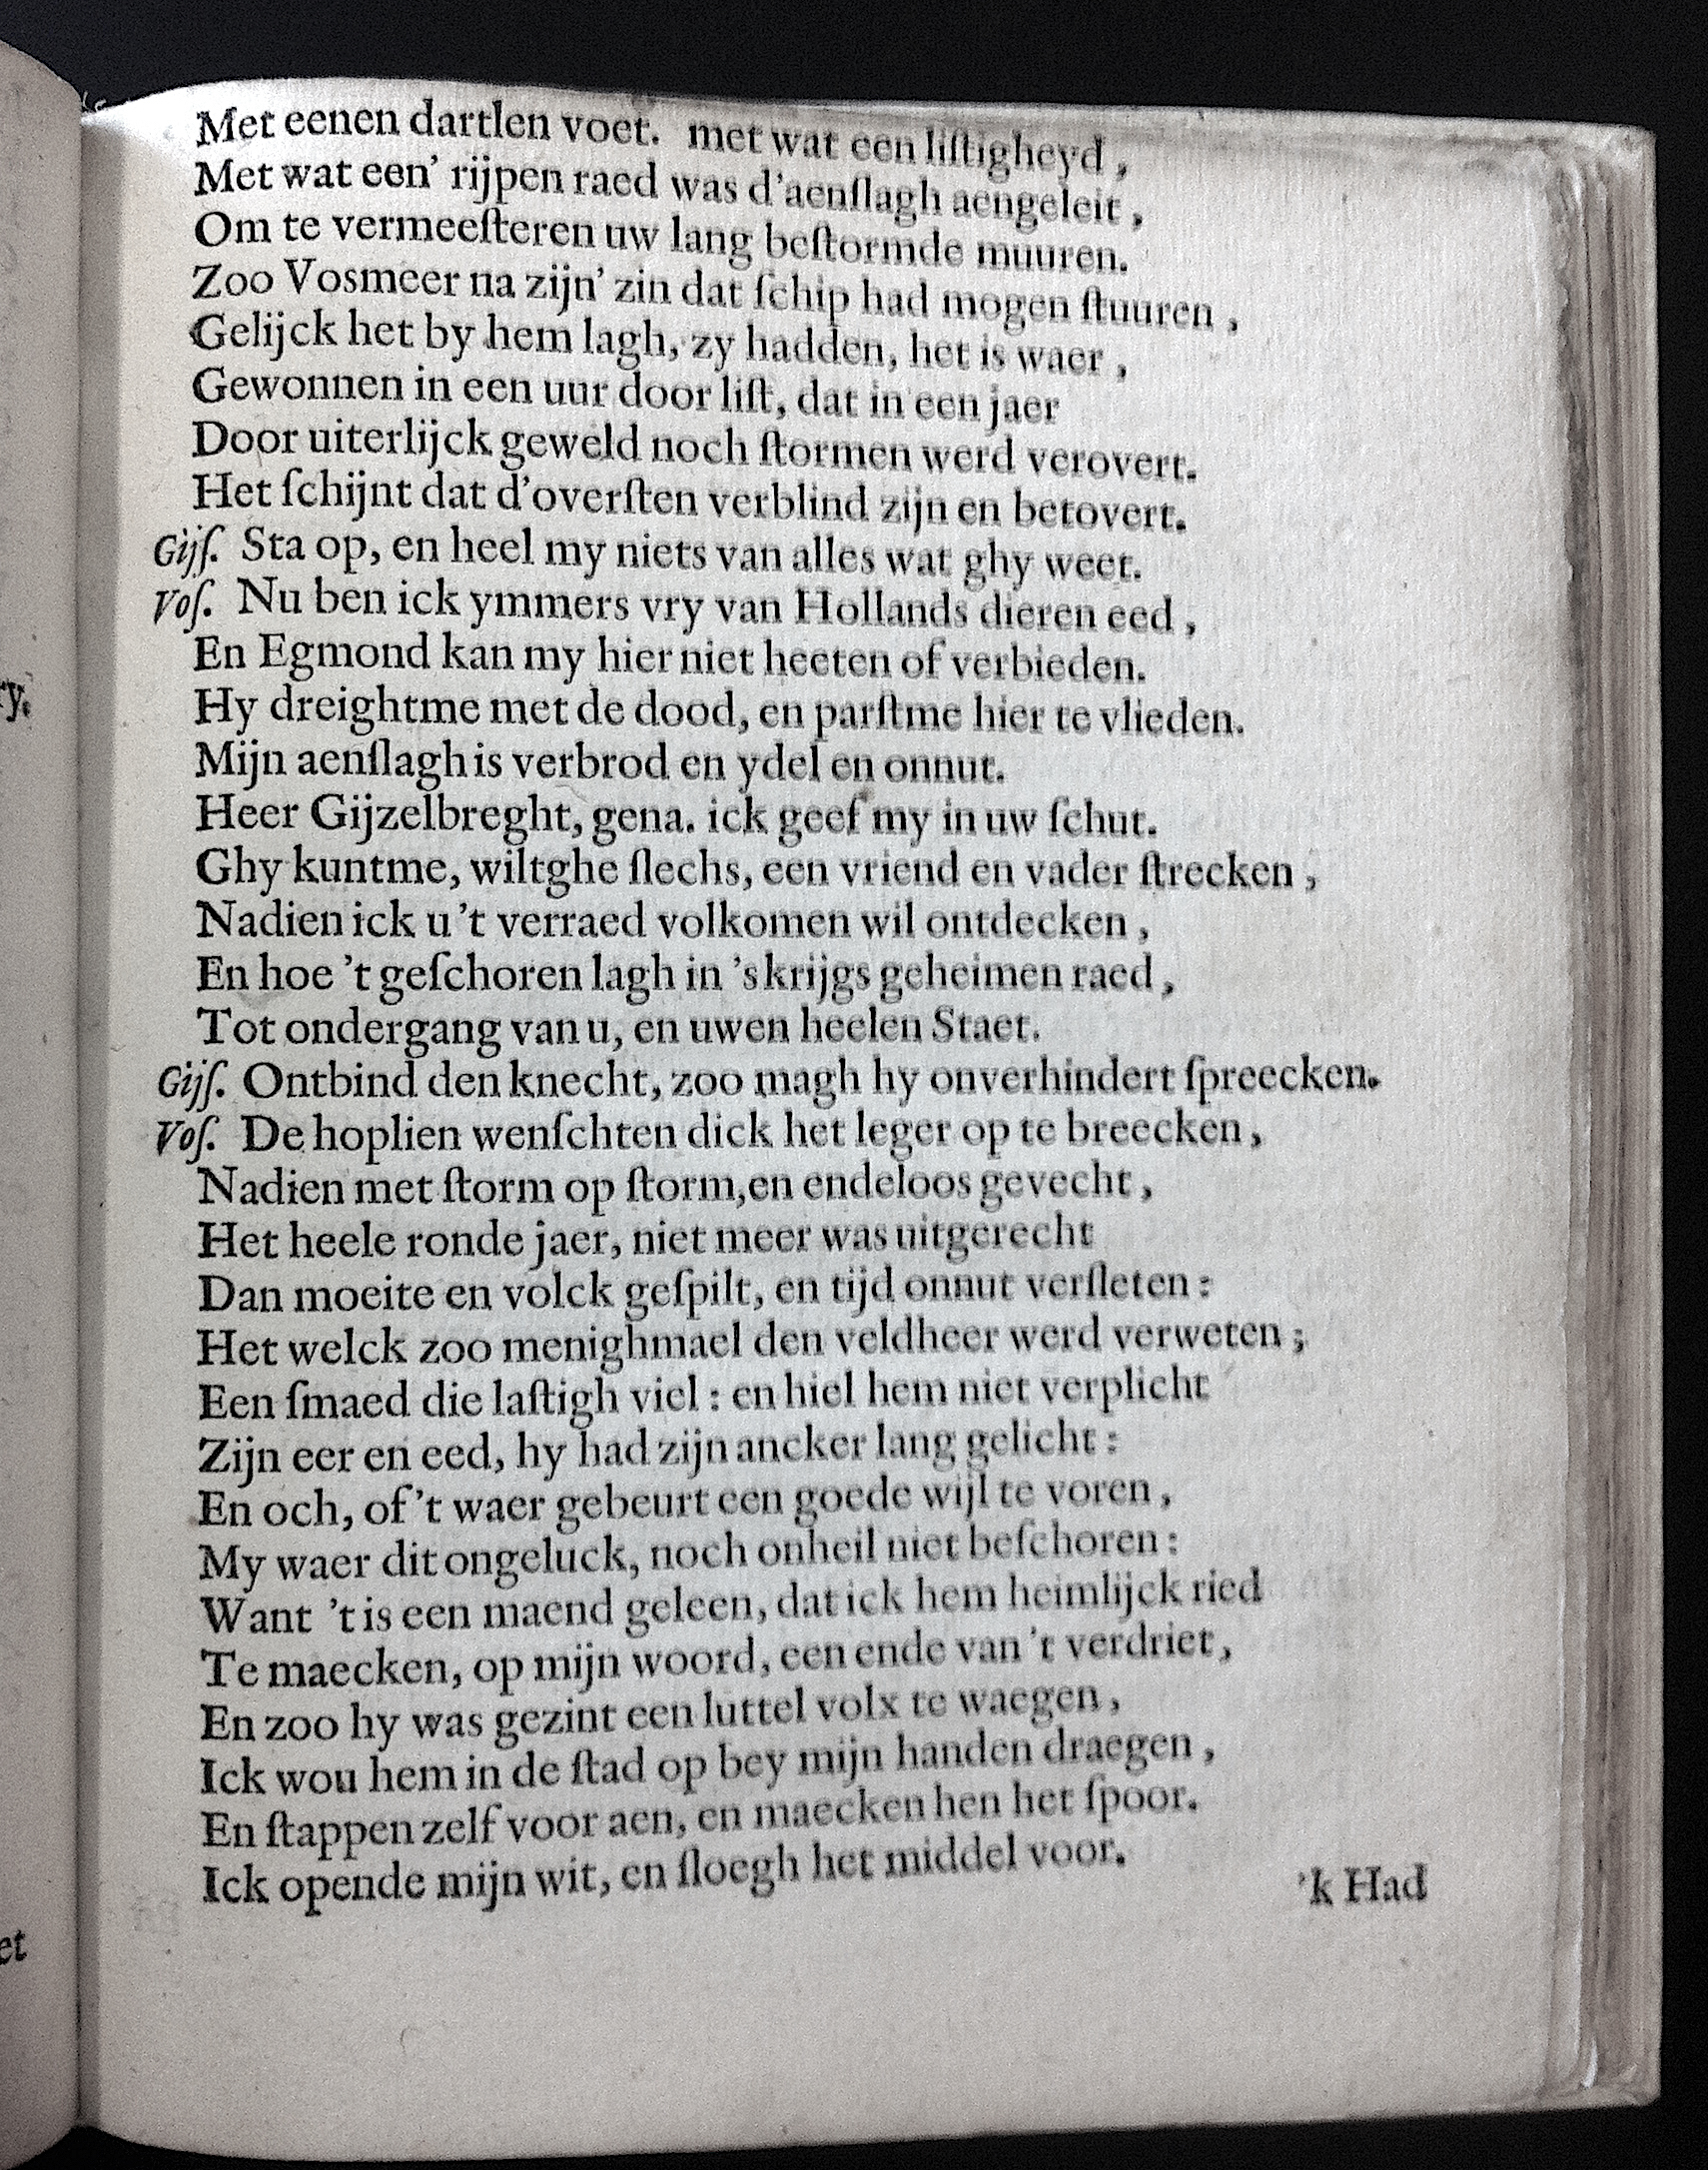 Met eenen dartlen voet. met wat een liſtigheyd,
Met wat een' rijpen raed was d'aenſlagh aengeleit,
Om te vermeeſteren uw lang beſtormde muuren.
Zoo Vosmeer na zijn' zin dat ſchip had mogen ſtuuren,
Gelijck het by hem lagh, zy hadden, het is waer,
Gewonnen in een uur door liſt, dat in een jaer
Door uiterlijck geweld noch ſtormen werd verovert.
Het ſchijnt dat d'overſten verblind zijn en betovert.
Gijſ. Sta op, en heel my niets van alles wat ghy weet.
Voſ. Nu ben ick ymmers vry van Hollands dieren eed,
En Egmond kan my hier niet heeten of verbieden.
Hy dreightme met de dood, en parſtme hier te vlieden.
Mijn aenſlagh is verbrod en ydel en onnut.
Heer Gijzelbreght, gena. ick geef my in uw ſchut.
Ghy kuntme, wiltghe ſlechs, een vriend en vader ſtrecken,
Nadien ick u 't verraed volkomen wil ontdecken,
En hoe 't geſchoren lagh in 's krijgs geheimen raed,
Tot ondergang van u, en uwen heelen Staet.
Gijſ. Ontbind den knecht, zoo magh hy onverhindert ſpreecken.
Voſ. De hoplien wenſchten dick het leger op te breecken,
Nadien met ſtorm op ſtorm, en endeloos gevecht,
Het heele ronde jaer, niet meer was uitgerecht
Dan moeite en volck geſpilt, en tijd onnut verſleten:
Het welck zoo menighmael den veldheer werd verweten;
Een ſmaed die laſtigh viel: en hiel hem niet verplicht
Zijn eer en eed, hy had zijn ancker lang gelicht:
En och, of 't waer gebeurt een goede wijl te voren,
My waer dit ongeluck, noch onheil niet beſchoren:
Want 't is een maend geleen, dat ick hem heimlijck ried
Te maecken, op mijn woord, een ende van 't verdriet,
En zoo hy was gezint een luttel volx te waegen,
Ick wou hem in de ſtad op bey mijn handen draegen,
En ſtappen zelf voor aen, en maecken hen het ſpoor.
Ick opende mijn wit, en ſloegh het middel voor.
'k Had
ry.
et